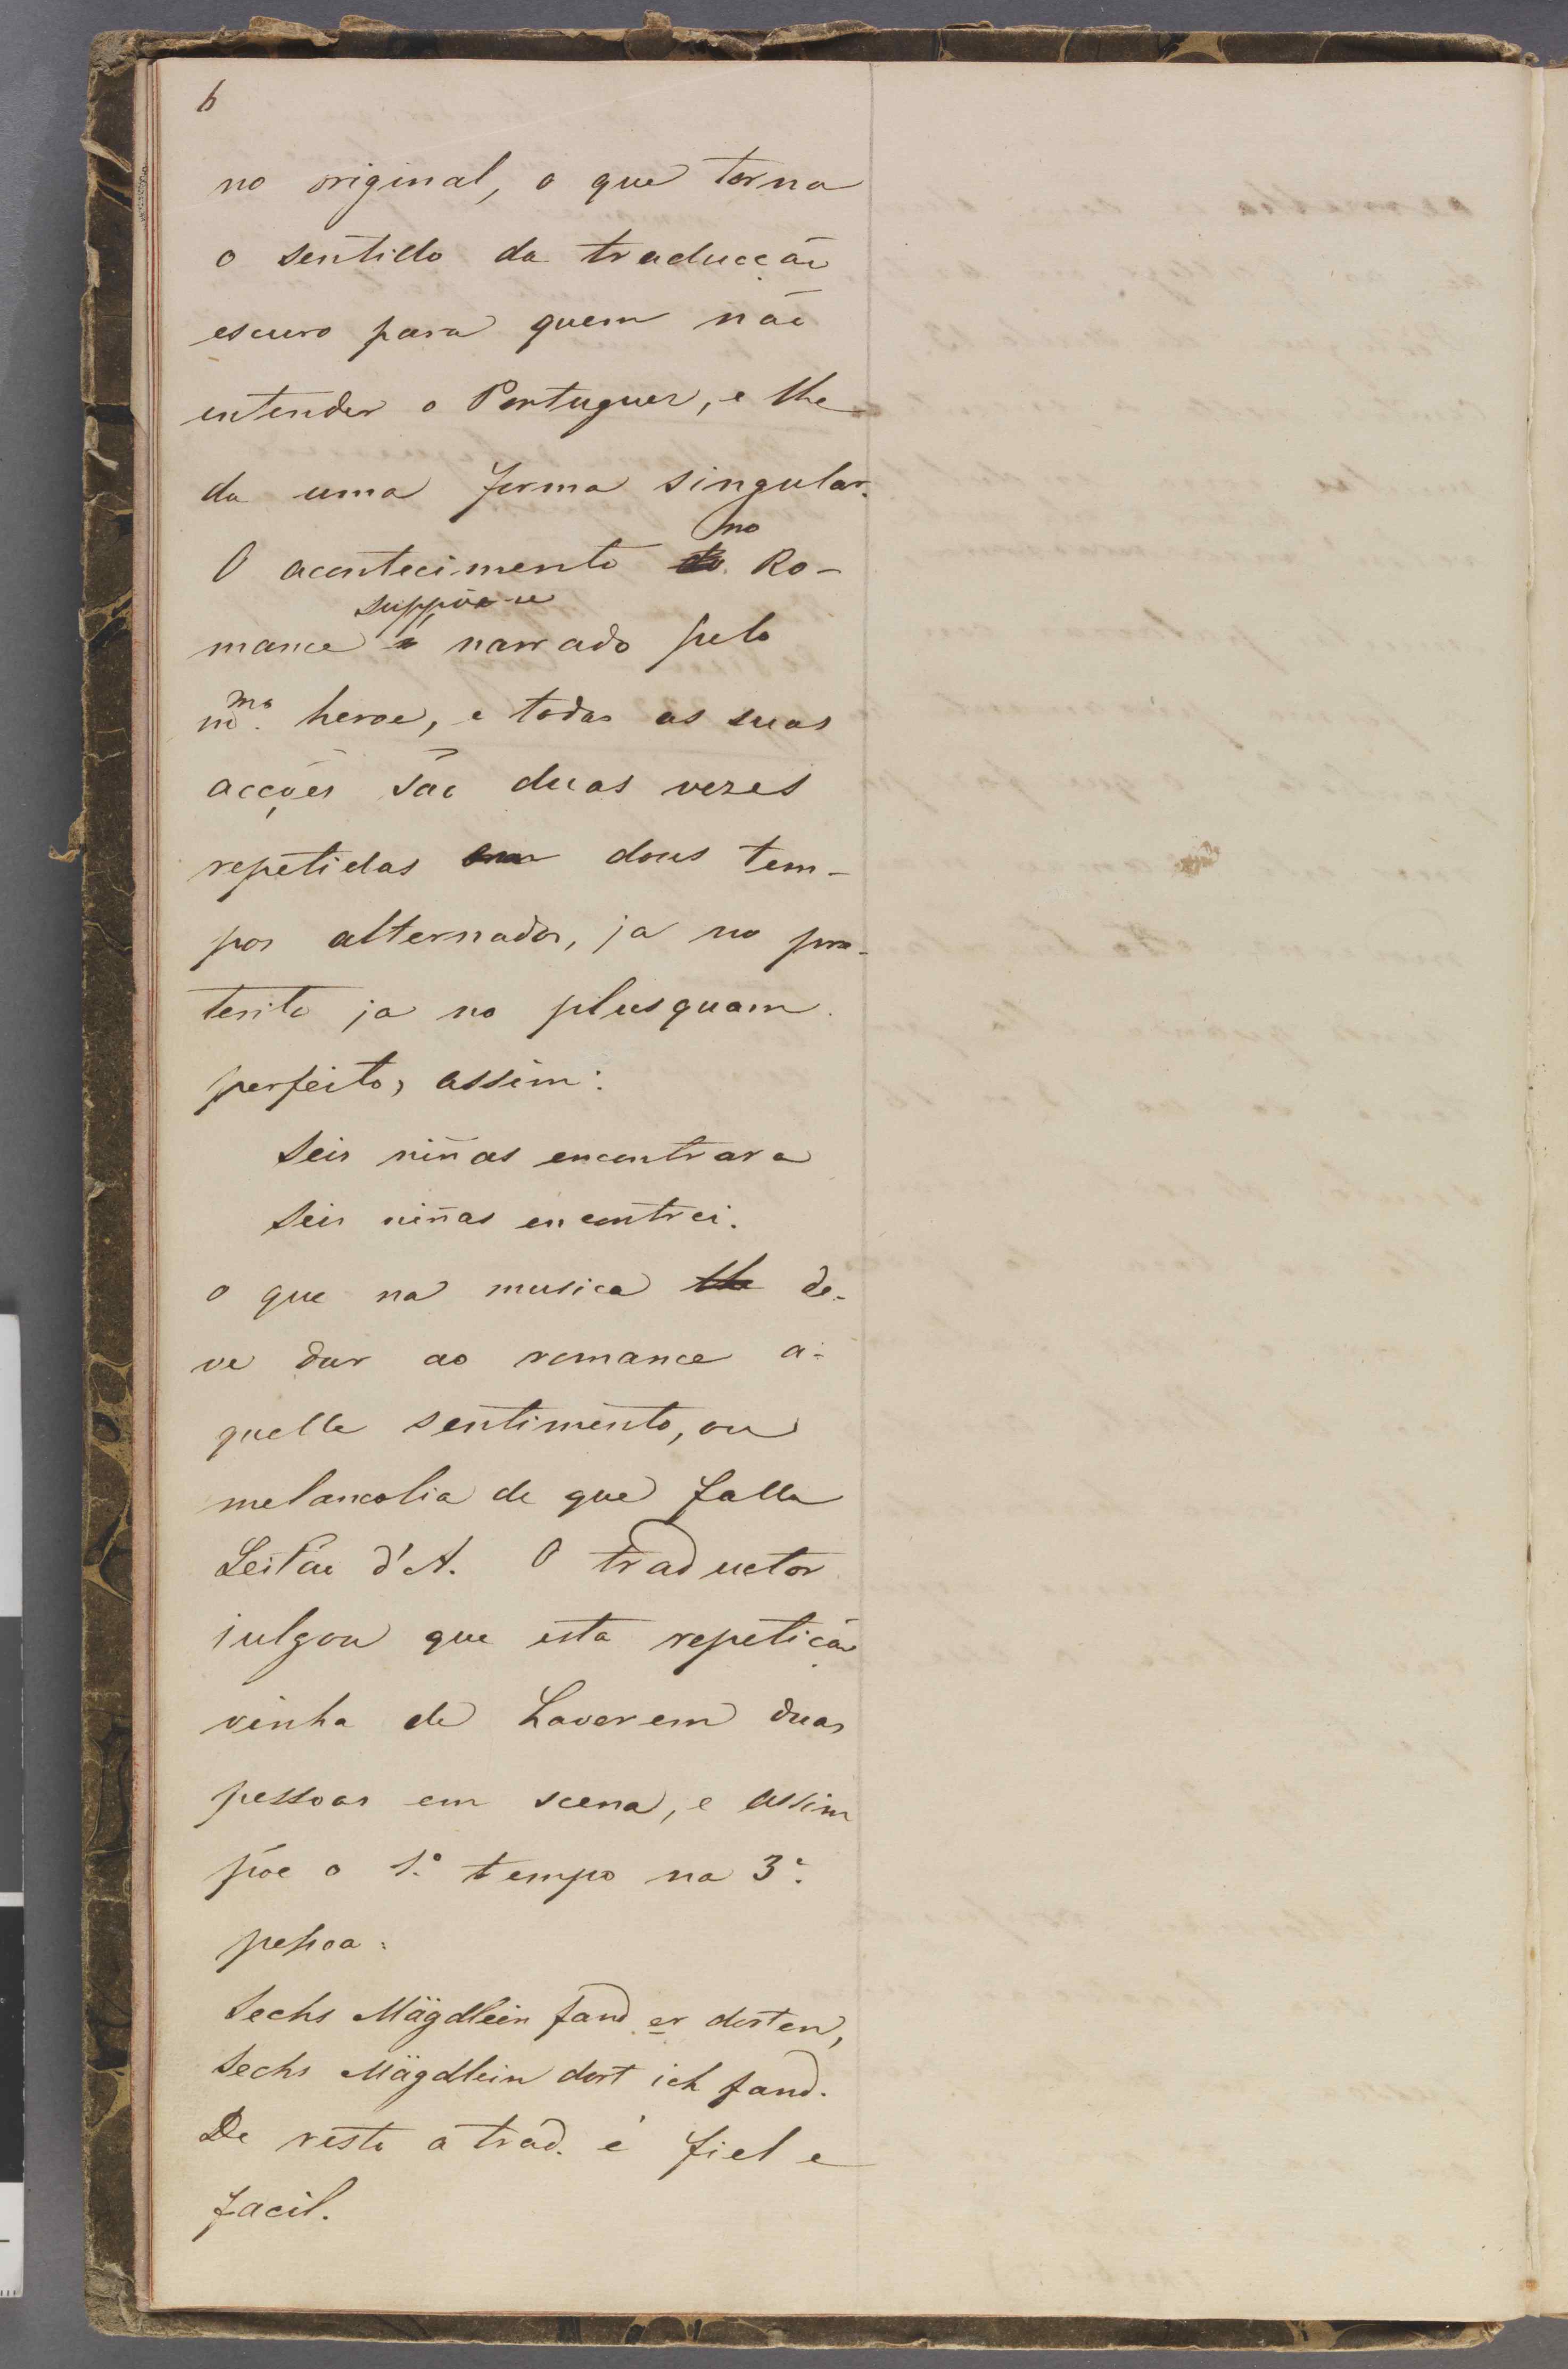 6
no original, o que torna
o sentido da traducção
escuro para quem não
entender o Portuguez, e lhe
da uma forma singular.
O acontecimento do no Ro-
mance é suppõe-se narrado pelo
m.mo heroe, e todas as suas
acções são duas vezes
repetidas em dous tem-
pos alternados, ja no pre-
terito ja no plusquam
perfeito, assim:
Seis niñas encontrara
Seis niñas encontrei.
o que na musica lhe de-
ve dar ao romance a-
quelle sentimento, ou
melancolia de que falla
Leitão d'A. O traductor
julgou que esta repetição
vinha de haverem duas
pessoas em scena, e assim
põe o 1.º tempo na 3.ª
pessoa:
Sechs Mägdlein fand er dorten,
Sechs Mägdlein dort ich fand.
De resto a trad. é fiel e
facil.